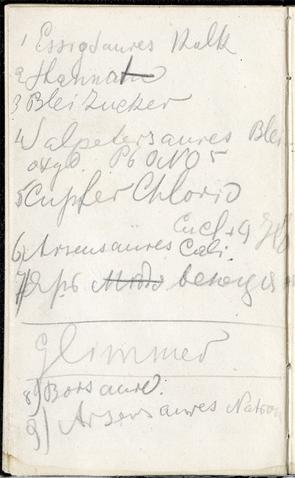 1 Essigsaures Kalk
2 Hannath
3 Bleizucker
4 Salpetersaures Blei
oxyd. Pb O NO5
5 Cupfer Chlorid
Cu Cl + 9
6) Arsensaures Cali.
7)
Glimmer
8) Borsaure.
9) Arsensaures Natron